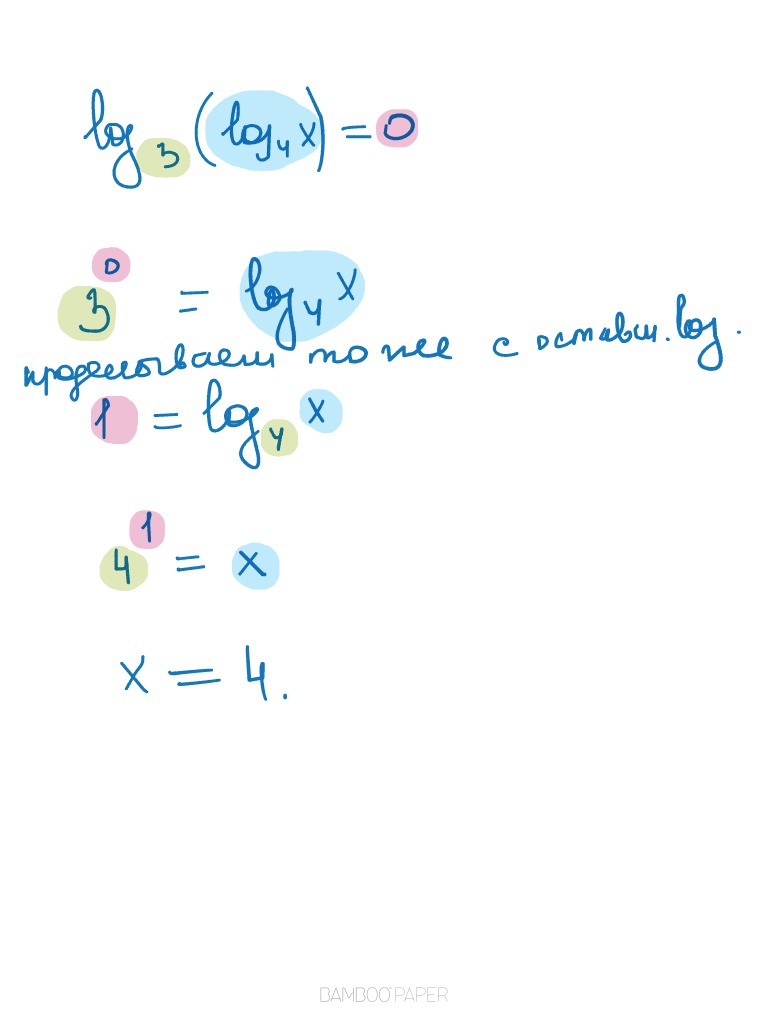 log₃ (log₄ x) = 0
3⁰ = log₄ x
проделываем то же с оставш. log.
1 = log₄ x
4¹ = x
x = 4.
BAMBOO PAPER